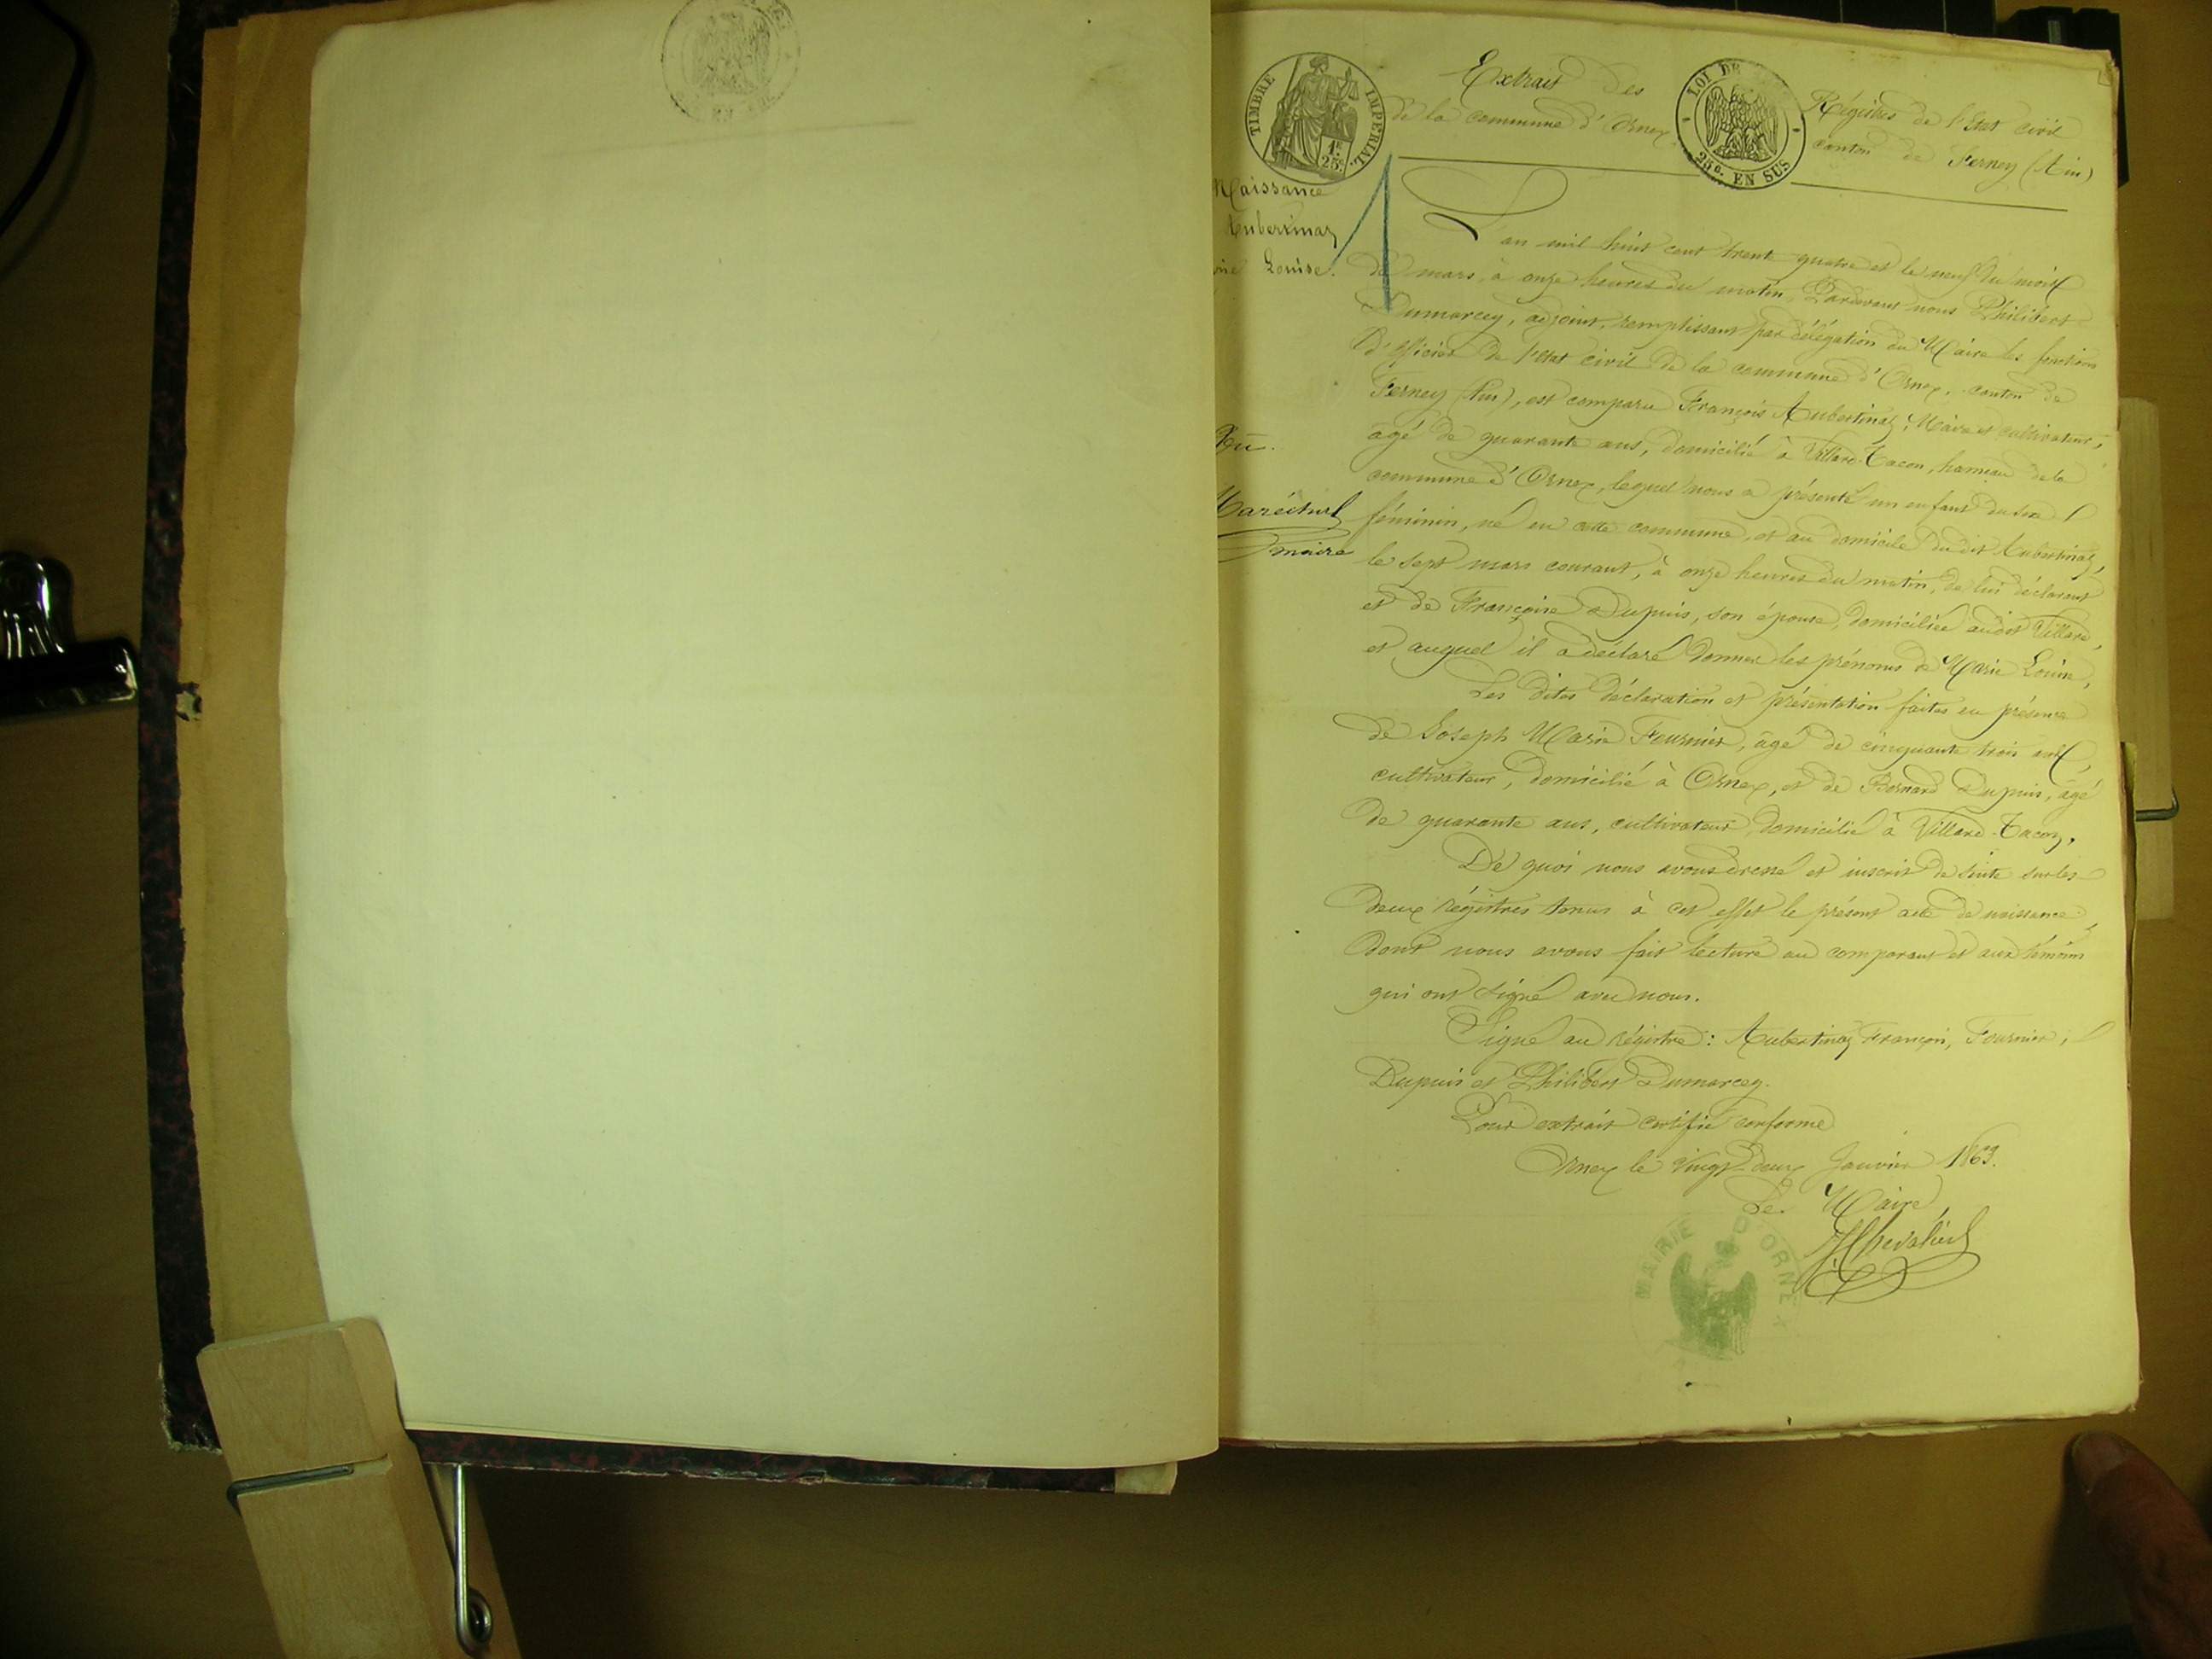 TIMBRE IMPERIAL
1F. 25c.
LOI DE
25c. EN SUS
Extrait des Régistres de l'Etat civil
de la commune d'Ornex canton de Ferney (Ain)
Naissance
Aubertinaz
Louise.
Vu.
Maréchal
maire
L'an mil huit cent trente quatre et le neuf du mois
de mars, à onze heures du matin, Pardevant nous Philibert
Dumarcey, adjoint, remplissant par délégation du Maire les fonctions
d'officier de l'Etat civil de la commune d'Ornex, canton de
Ferney (Ain), est comparu François Aubertinaz, Maire et cultivateur,
âgé de quarante ans, domicilié à Villard-Tacon, hameau de la
commune d'Ornex, lequel nous a présenté un enfant du sexe
féminin, né en cette commune, et au domicile dudit Aubertinaz,
le sept mars courant, à onze heures du matin, de lui déclarant
et de Françoise Dupuis, son épouse, domiciliée audit Villard,
et auquel il a déclaré donner les prénoms de Marie Louise,
Les dites déclaration et présentation faites en présence
de Joseph Marie Fournier, âgé de cinquante trois ans,
cultivateur, domicilié à Ornex, et de Bernard Dupuis, âgé
de quarante ans, cultivateur domicilié à Villard-Tacon,
De quoi nous avons dressé et inscrit de suite sur les
deux régistres tenus à cet effet le présent acte de naissance,
dont nous avons fait lecture au comparant et aux témoins
qui ont signé avec nous.
Signé au régistre : Aubertinaz François, Fournier,
Dupuis et Philibert Dumarcey.
Pour extrait certifié conforme
Ornex le vingt deux Janvier 1863.
Le Maire,
Chevalier
MAIRIE D'ORNEX